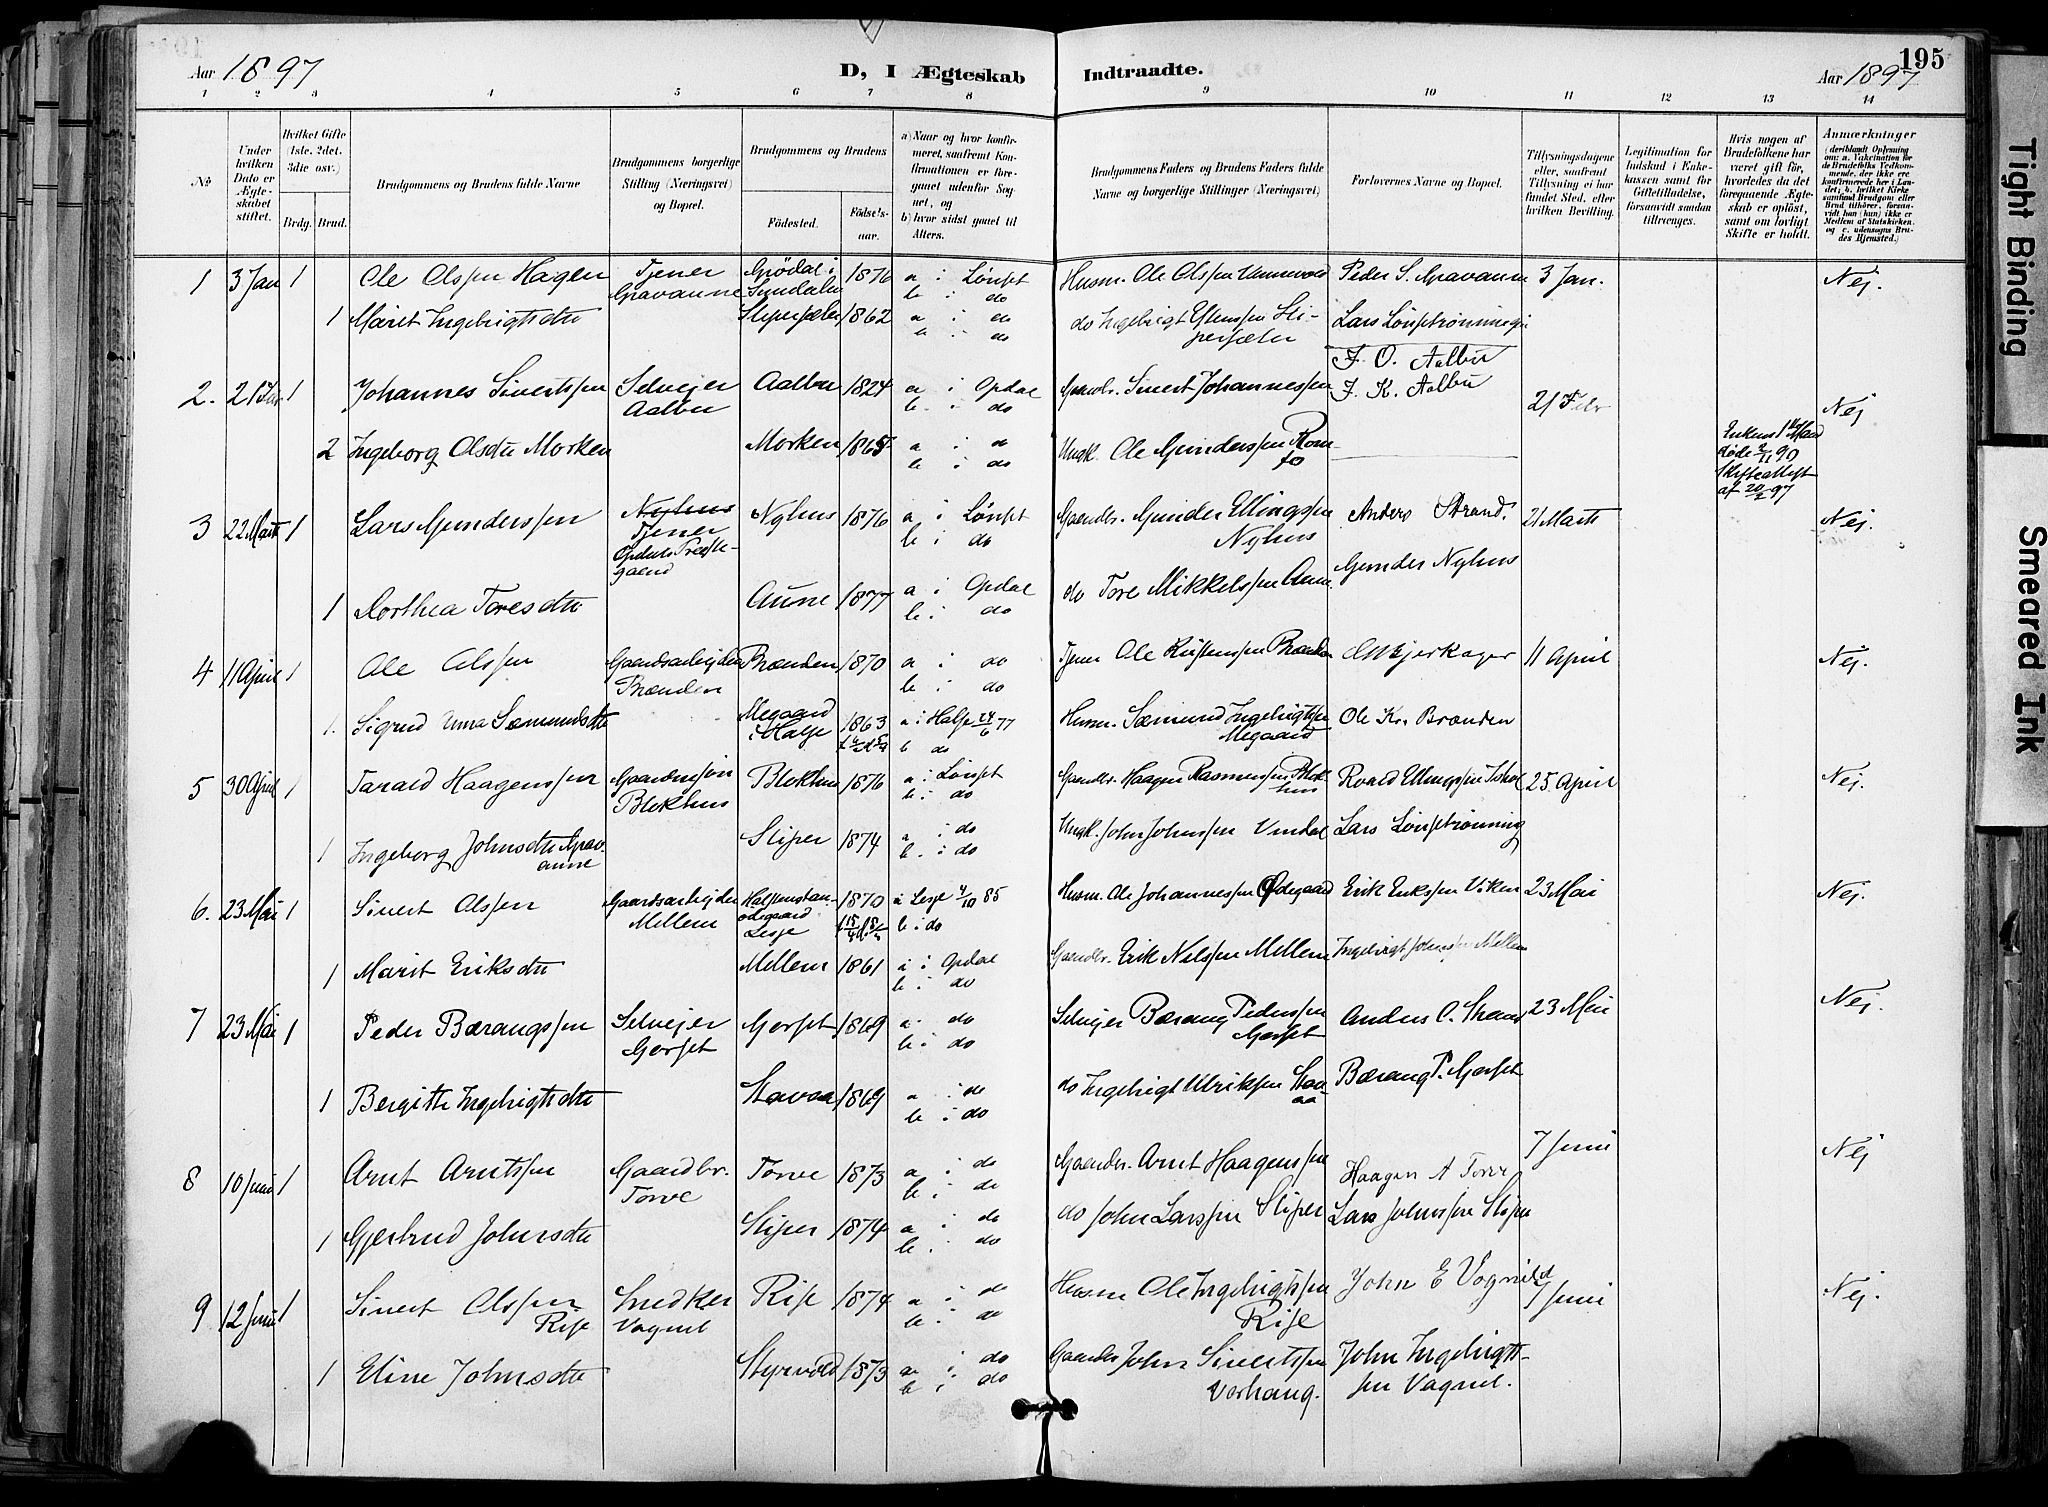 195
Aar 1897 D, I Ægteskab Indtraadte. Aar 1897
1 2 3 4 5 6 7 8 9 10 11 12 13 14
No
Under hvilken Dato er Ægteskabet stiftet.
Hvilket Gifte (1ste, 2det, 3die osv.)
Brdg. Brud.
Brudgommens og Brudens fulde Navne
Brudgommens borgerlige Stilling (Næringsvei) og Bopæl.
Brudgommens og Brudens
Fødested. Fødselsaar.
a) Naar og hvor konfirmeret, saafremt Konfirmationen er foregaaet udenfor Sognet, og
b) hvor sidst gaaet til Alters.
Brudgommens Faders og Brudens Faders fulde Navne og borgerlige Stillinger (Næringsvei)
Forlovernes Navne og Bopæl.
Tillysningsdagene eller, saafremt Tillysning ei har fundet Sted, efter hvilken Bevilling.
Legitimation for Indskud i Enkekassen samt for Giftetilladelse, forsaavidt saadan tiltrænges.
Hvis nogen af Brudefolkene har været gift før, hvorledes da det foregaaende Ægteskab er opløst, samt om lovligt Skifte er holdt.
Anmærkninger
(deriblandt Oplysning om: a. Vakcination for de Brudefolks Vedkommende, der ikke ere konfirmerede her i Landet; b. hvilket Kirkesamfund Brudgom eller Brud tilhører, forsaavidt han (hun) ikke er Medlem af Statskirken, og c. udensogns Brudes Hjemsted.)
1 3 Jan 1 Ole Olssen Hagen Tjener Gravaune Grødal i Sundalen 1876 a i Lønset b do Husm. Ole Olssen Peder S. Gravaune 3 Jan. Nej.
1 Marit Ingebrigtsdtr Stipersæter 1862 a i do b i do do Ingebrigt Estenssen Stipersæter Lars Lønsetrønningen
2. 21 1 Johannes Sivertssen Selvejer Aalbu Aalbu 1824 a i Opdal b. i do Gaardbr. Sivert Johannessen J. O. Aalbu J. K. Aalbu 21 Febr Nej
2 Ingeborg Olsdtr Morken Morken 1865 a i do b i do Ungk. Ole Gunderssen Romfo Enkens 1ste Mand døde 2/11 90 Skifteattest af 20/2 97
3 22 Marts 1 Lars Gunderssen Nyhus Tjener Opdals Prestegaard Nyhus 1876 a i Lønset b i do Gaardbr. Gunder Ellingssen Nyhus Anders Strand. 21 Marts Nej.
1 Dorthea Toresdtr Aune 1877 a i Opdal b i do do Tore Mikkelssen Aune Gunder Nyhus
4 11 April 1 Ole Olssen Gaardsarbejder Brænden Brænden 1870 a i do b i do Tjener Ole Kristenssen Brænden O Bjerkager 11 April Nej.
1. Sigrid Unna Sæmundsdtr Megaard i Halse 1863 a i Halse 24/6 77 b do Husm. Sæmund Ingebrigtssen Megaard Ole Kr. Brænden
5 30 April 1 Tarald Haagenssen Gaardmesøn Blekhus Blekhus 1876 a i Lønset b i do Gaardbr. Haagen Rasmussen Blekhus Roald Ellingssen 25 April Nej.
1 Ingeborg Johnsdtr Gravaune Stiper 1874 a i do b. i do Ungk. John Johnssen Vindal Lars Lønsetrønning
6. 23 Mai 1 Sivert Olssen Gaardsarbejder Mellem ødegaard Lesje 1870 a Lesje 4/10 85 b i do Husm. Ole Johannessen Ødegaard Erik Erikssen Viken 23 Mai Nej.
1 Marit Eriksdtr Mellem 1861 a i Opdal b i do Gaardbr. Erik Nilssen Mellem Ingebrigt Johnssen Mellem
7 23 Mai 1 Peder Bærangssen Selvejer Gorset Gorset 1869 a do b i do Selvejer Bærang Pederssen Gorset Anders O. Strand 23 Mai Nej.
1 Bergitte Ingebrigtsdtr Stavaa 1869 a i do b i do do Ingebrigt Ulrikssen Stavaa Bærang P. Gorset
8 10 Juni 1 Arnt Arntssen Gaardbr. Torve Torve 1873 a i do b i do Gaardbr. Arnt Haagenssen Haagen A Torve 7 Juni Nej
1 Gjertrud Johnsdtr Stiper 1874 a i do b i do do John Larssen Stiper Lars Johnssen Stiper
9 12 Juni 1 Sivert Olssen Rise Snedker Vognil Rise 1874 a i do b i do Husm Ole Ingebrigtssen Rise John E Vognild 7 Juni Nej.
1 Eline Johnsdtr Styrvold 1873 a i do b i do Gaardbr John Sivertssen Vorhaug. John Ingebrigtssen Vognil.
Tight Binding
Smeared Ink